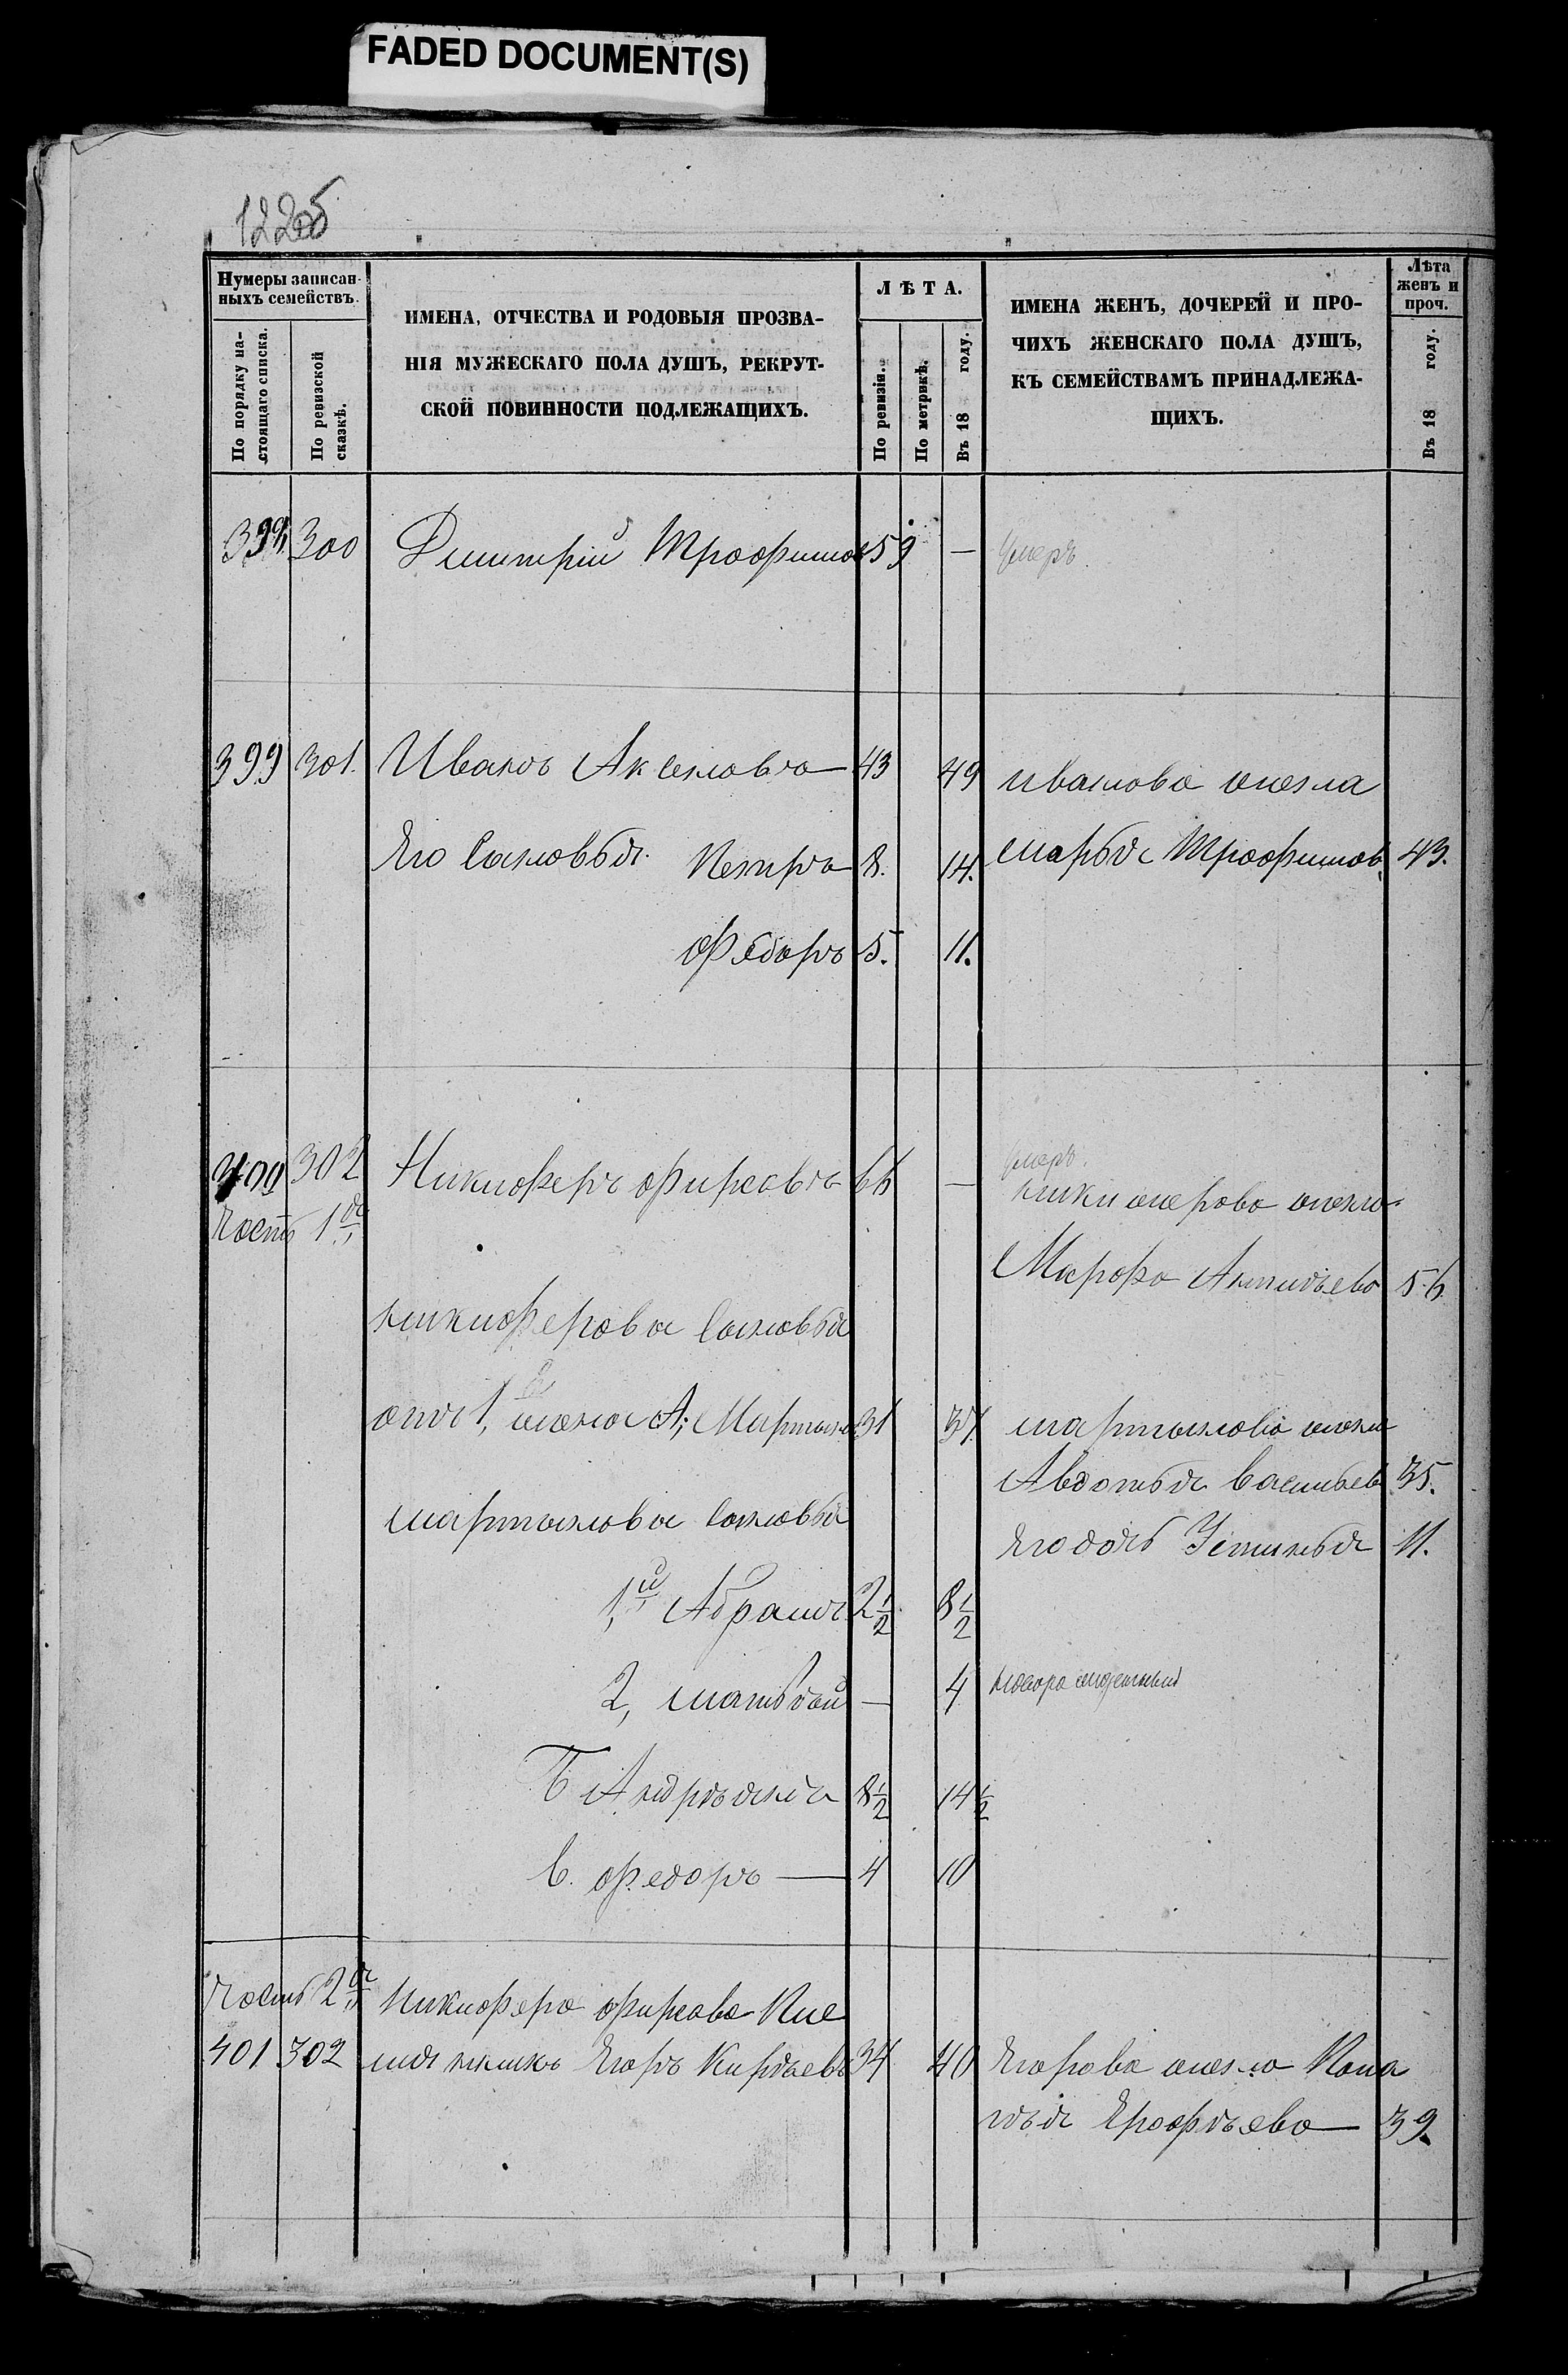 FADED DOCUMENT(S)
122об
Нумеры записан-
ныхъ семействъ.
По порядку на-
стоящаго списка.
По ревизской
сказкѣ.
ИМЕНА, ОТЧЕСТВА И РОДОВЫЯ ПРОЗВА-
НІЯ МУЖЕСКАГО ПОЛА ДУШЪ, РЕКРУТ-
СКОЙ ПОВИННОСТИ ПОДЛЕЖАЩИХЪ.
ЛѢТА.
По ревизіи.
По метрикѣ.
Въ 18 году.
ИМЕНА ЖЕНЪ, ДОЧЕРЕЙ И ПРО-
ЧИХЪ ЖЕНСКАГО ПОЛА ДУШЪ,
КЪ СЕМЕЙСТВАМЪ ПРИНАДЛЕЖА-
ЩИХЪ.
Лѣта
женъ и
проч.
Въ 18 году.
300 Дмитрій Трофимов 59 — умеръ.
399 301. Иванъ Аксеновъ 43 49 иванова жена
Его Сыновья. Петръ 8. 14. марья Трофимов. 43.
Федоръ 5. 11.
400 302 Никиферъ фирсовъ 66 — умеръ.
Часть 1я никиферова жена
Марфа 56
никиферова Сыновья
отъ 1, жены А; Мартын 31 37. мартынова жена
Авдотья Васильев 35.
мартынова Сыновья
Его дочь Устинья 11.
1,й Абрамъ 2½ 8½
2, матвей — 4
Б Андреянъ 8½ 14½
В. федоръ — 4 10
Часть 2я никифера фирсова Пле
401 302 мянникъ Егоръ Кирѣевъ 34 40 Егорова жена Пела
гѣя Ерофѣева — 39.